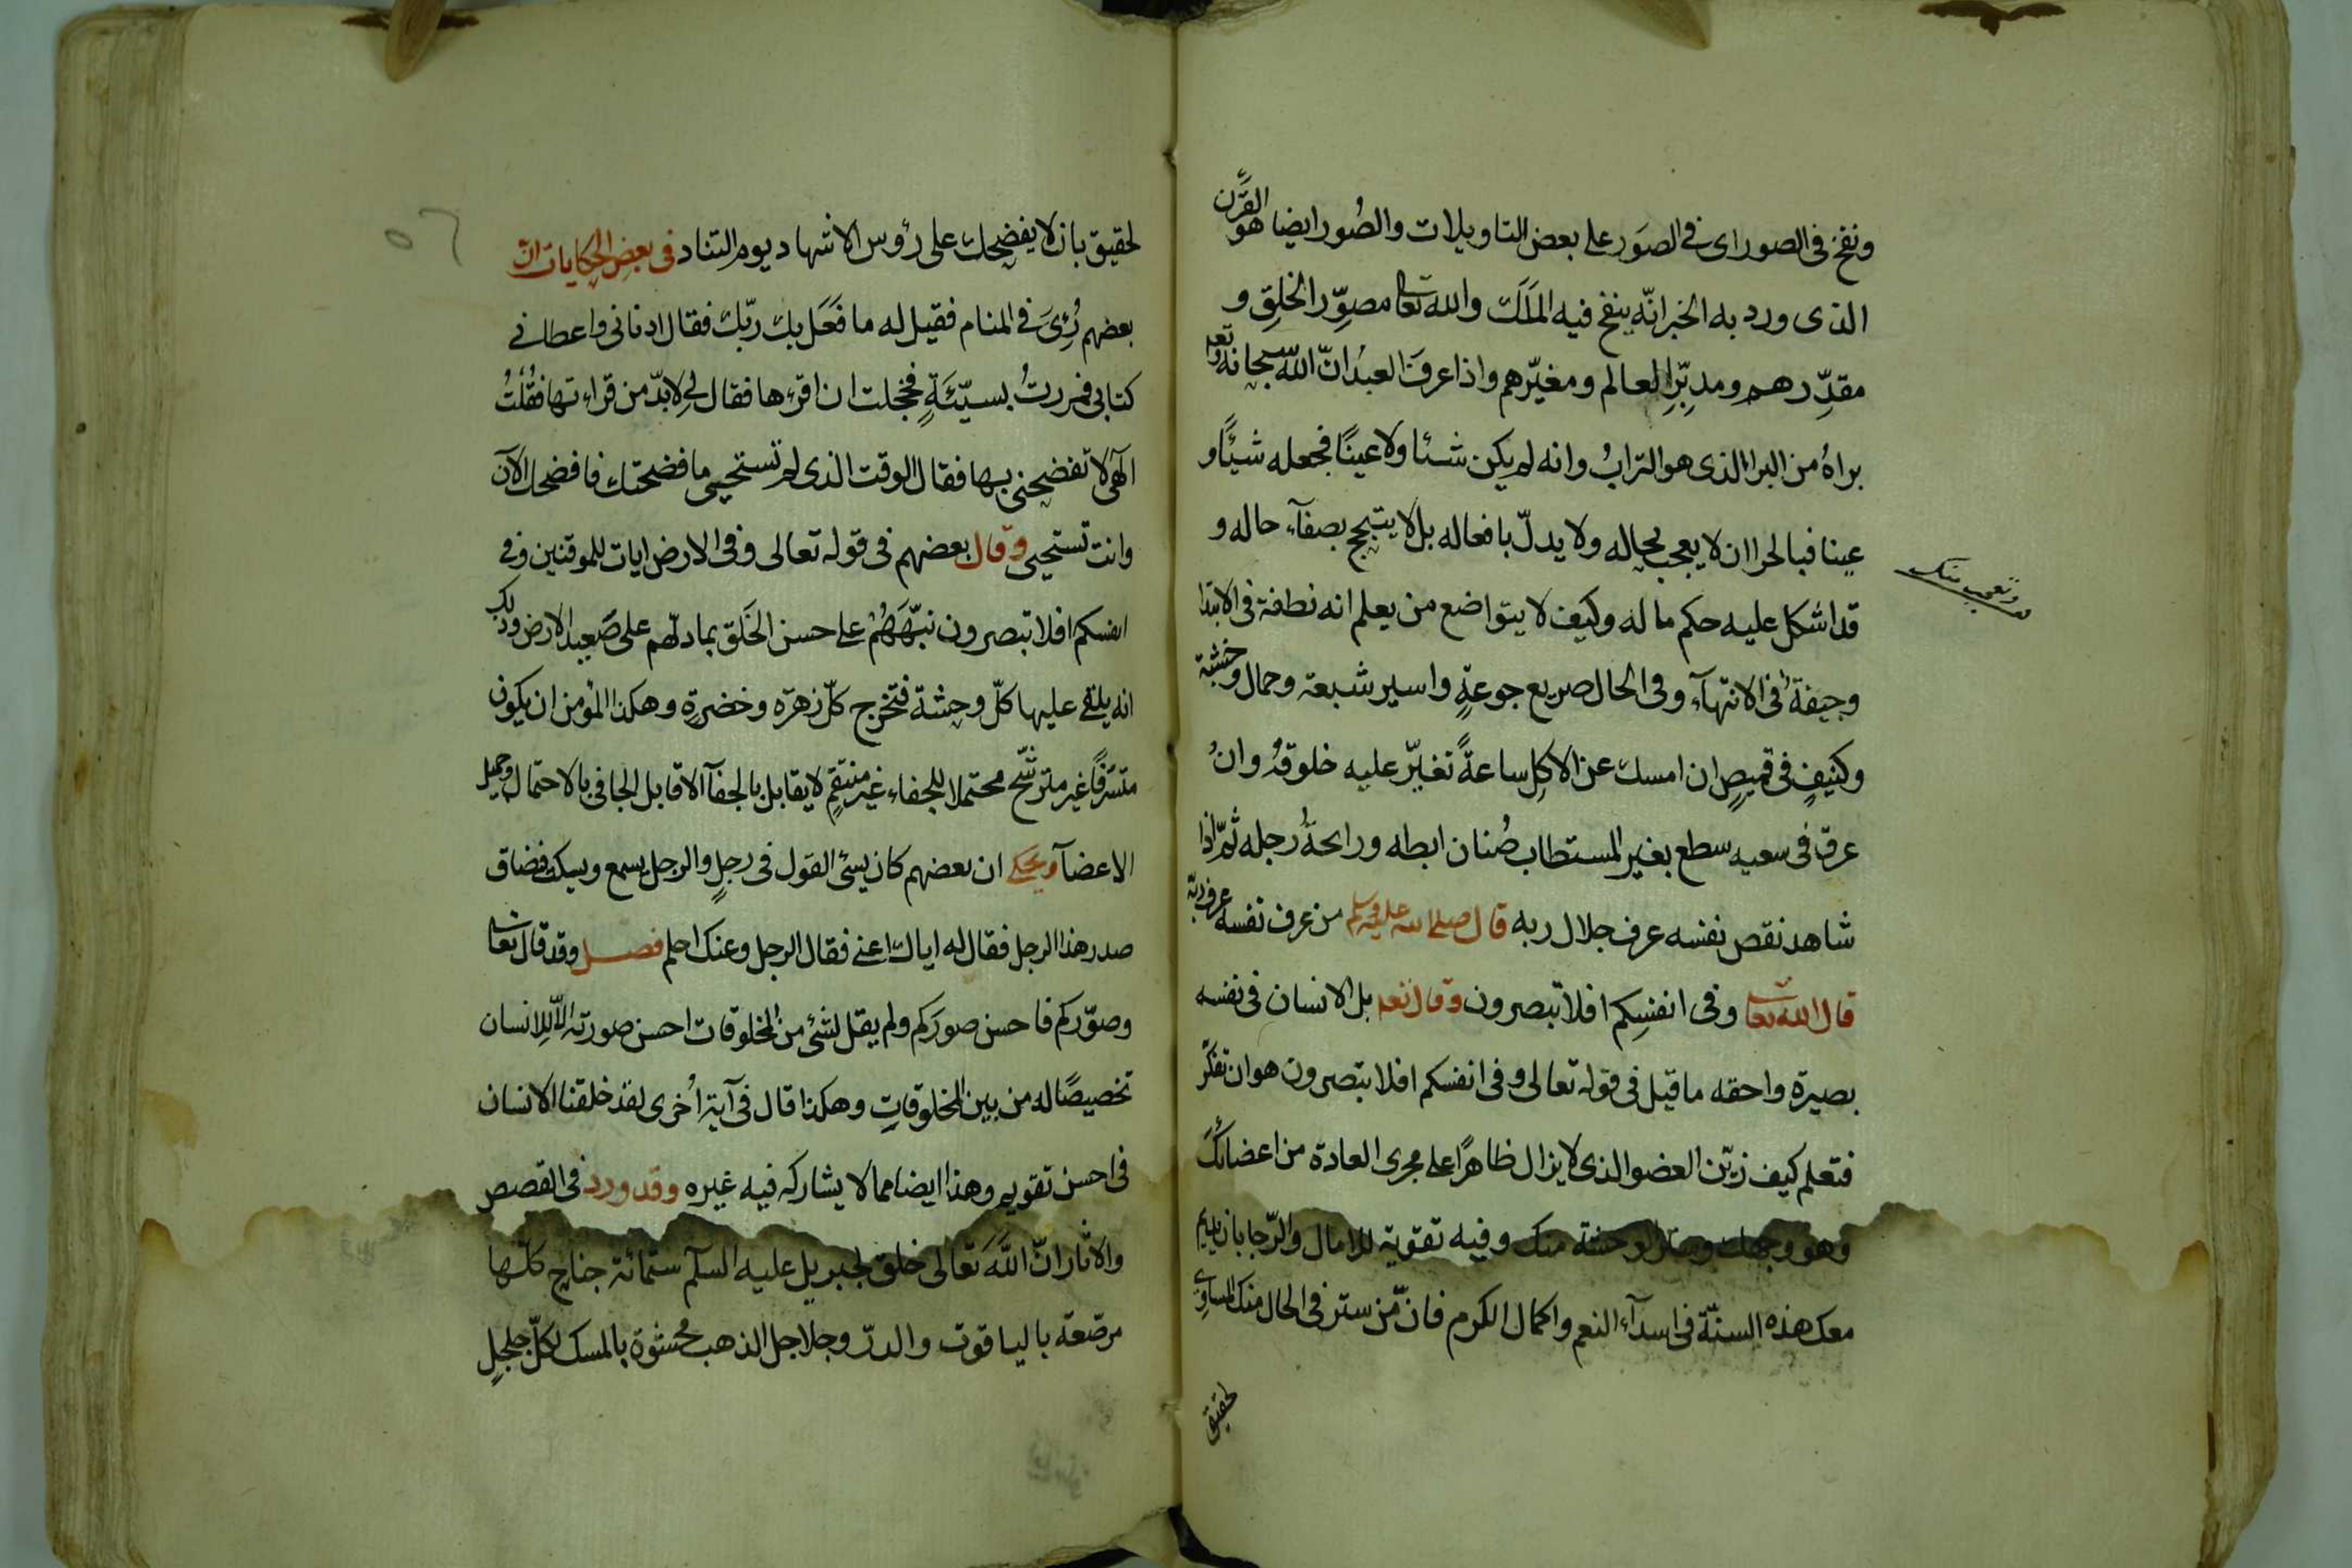 ونفخ في الصور اى في الصوَر على بعض التاويلات والصُور ايضا هو القَرْن
الذى ورد به الخبر انّه ينفخ فيه المَلَك والله تعا مصوِّر الخلق و
مقدِّرهم ومدبِّر العالم ومغيّرهم واذا عرفَ العبدُ انّ اللّٰه سبحانه وتعه
براهُ من البرا الذى هو الترابُ وانه لم يكن شئا ولا عينًا فجعله شيئًا و
عينا فبالحرا ان لا يعجب بحاله ولا يدلّ بافعاله بل لا يتبجح بصفآء حاله و
قد اشكل عليه حكم ما له وكيف لا يتواضع من يعلم انه نطفة فى الابتدا
وجيفة فى الانتهآء وفى الحال صريع جوعةٍ واسير شبعة وحمال وحشة
وكنيفٍ فى قميصٍ ان امسك عن الاكل ساعةً تغيّر عليه خلوقهُ وانْ
عرق فى سعيه سطع بغير المستطاب صُنان ابطه ورائحةُ رجله ثمّ اذا
شاهد نقص نفسه عرف جلال ربه قال صلى الله عليه وسلم من عرف نفسه عرف ربّه
قال الله تعا وفى انفسِكم افلا تبصرون وقال تعه بل الانسان فى نفسه
بصيرة واحقه ما قيل فى قوله تعالى وفى انفسكم افلا تبصرون هو ان تفكّر
فتعلم كيف زيّن العضو الذى لا يزال ظاهرًا على مجرى العادة من اعضائكَ
وهو وجهك وستر لوحشة منك وفيه تقوية للامال والرّجا بان يديم
معك هذه السنّة فى اسدآء النعم واكمال الكرم فانّ من ستر فى الحال منك المساوى
لحقيق
وتعجب منك
لحقيق بان لا يفضحك على رؤس الاشهاد يوم التناد فى بعض الحكايات انّ
بعضهم رُئِىَ فى المنام فقيل له ما فَعَل بك ربّك فقال ادنانى واعطانى
كتابى فمررتُ بسيّئَةٍ فخجلت ان اقرءها فقال لى لا بدّ من قراءتها فقُلتُ
الٓهى لا تفضحنى بها فقال الوقت الذى لم تستحيى ما فضحتك فافضحك الآن
وانت تستحيى وقال بعضهم فى قوله تعالى وفى الارض ايات للموقنين وفى
انفسكم افلا تبصرون نبّهَهُمْ على حسن الخَلق بما دلّهم على صَعِيد الارض وذلك
انه يلقى عليها كلّ وحشة فتخرج كلّ زهرة وخضرةٍ وهكذا المؤمن ان يكون
متشرّفًا غير مترشّح محتملا للجفاء غير منتقمٍ لا يقابل بالجفآ الا قابل الجافى بالاحتمال وجميل
الاعضآ ويحكى ان بعضهم كان يسئ القول فى رجلٍ والرجل يسمع ويسكت فضاق
صدر هذا الرجل فقال له اياك اعنى فقال الرجل وعنك احلم فصل وقد قال تعا
وصوّركم فاحسن صورَكم ولم يقل لشئ من المخلوقات احسن صورته الّا للانسان
تخصيصًا له من بين المخلوقاتِ وهكذا قال فى آية اُخرى لقد خلقنا الانسان
فى احسن تقويم وهذا ايضا مما لا يشاركه فيه غيره وقد ورد فى القصص
والاثار انّ اللّٰه تَعالى خلق لجبريل عليه السلٓم ستّمائة جناح كلّها
مرصّعة بالياقوت والدرّ وجلاجل الذهب محشوّة بالمسك لكلّ جلجلٍ